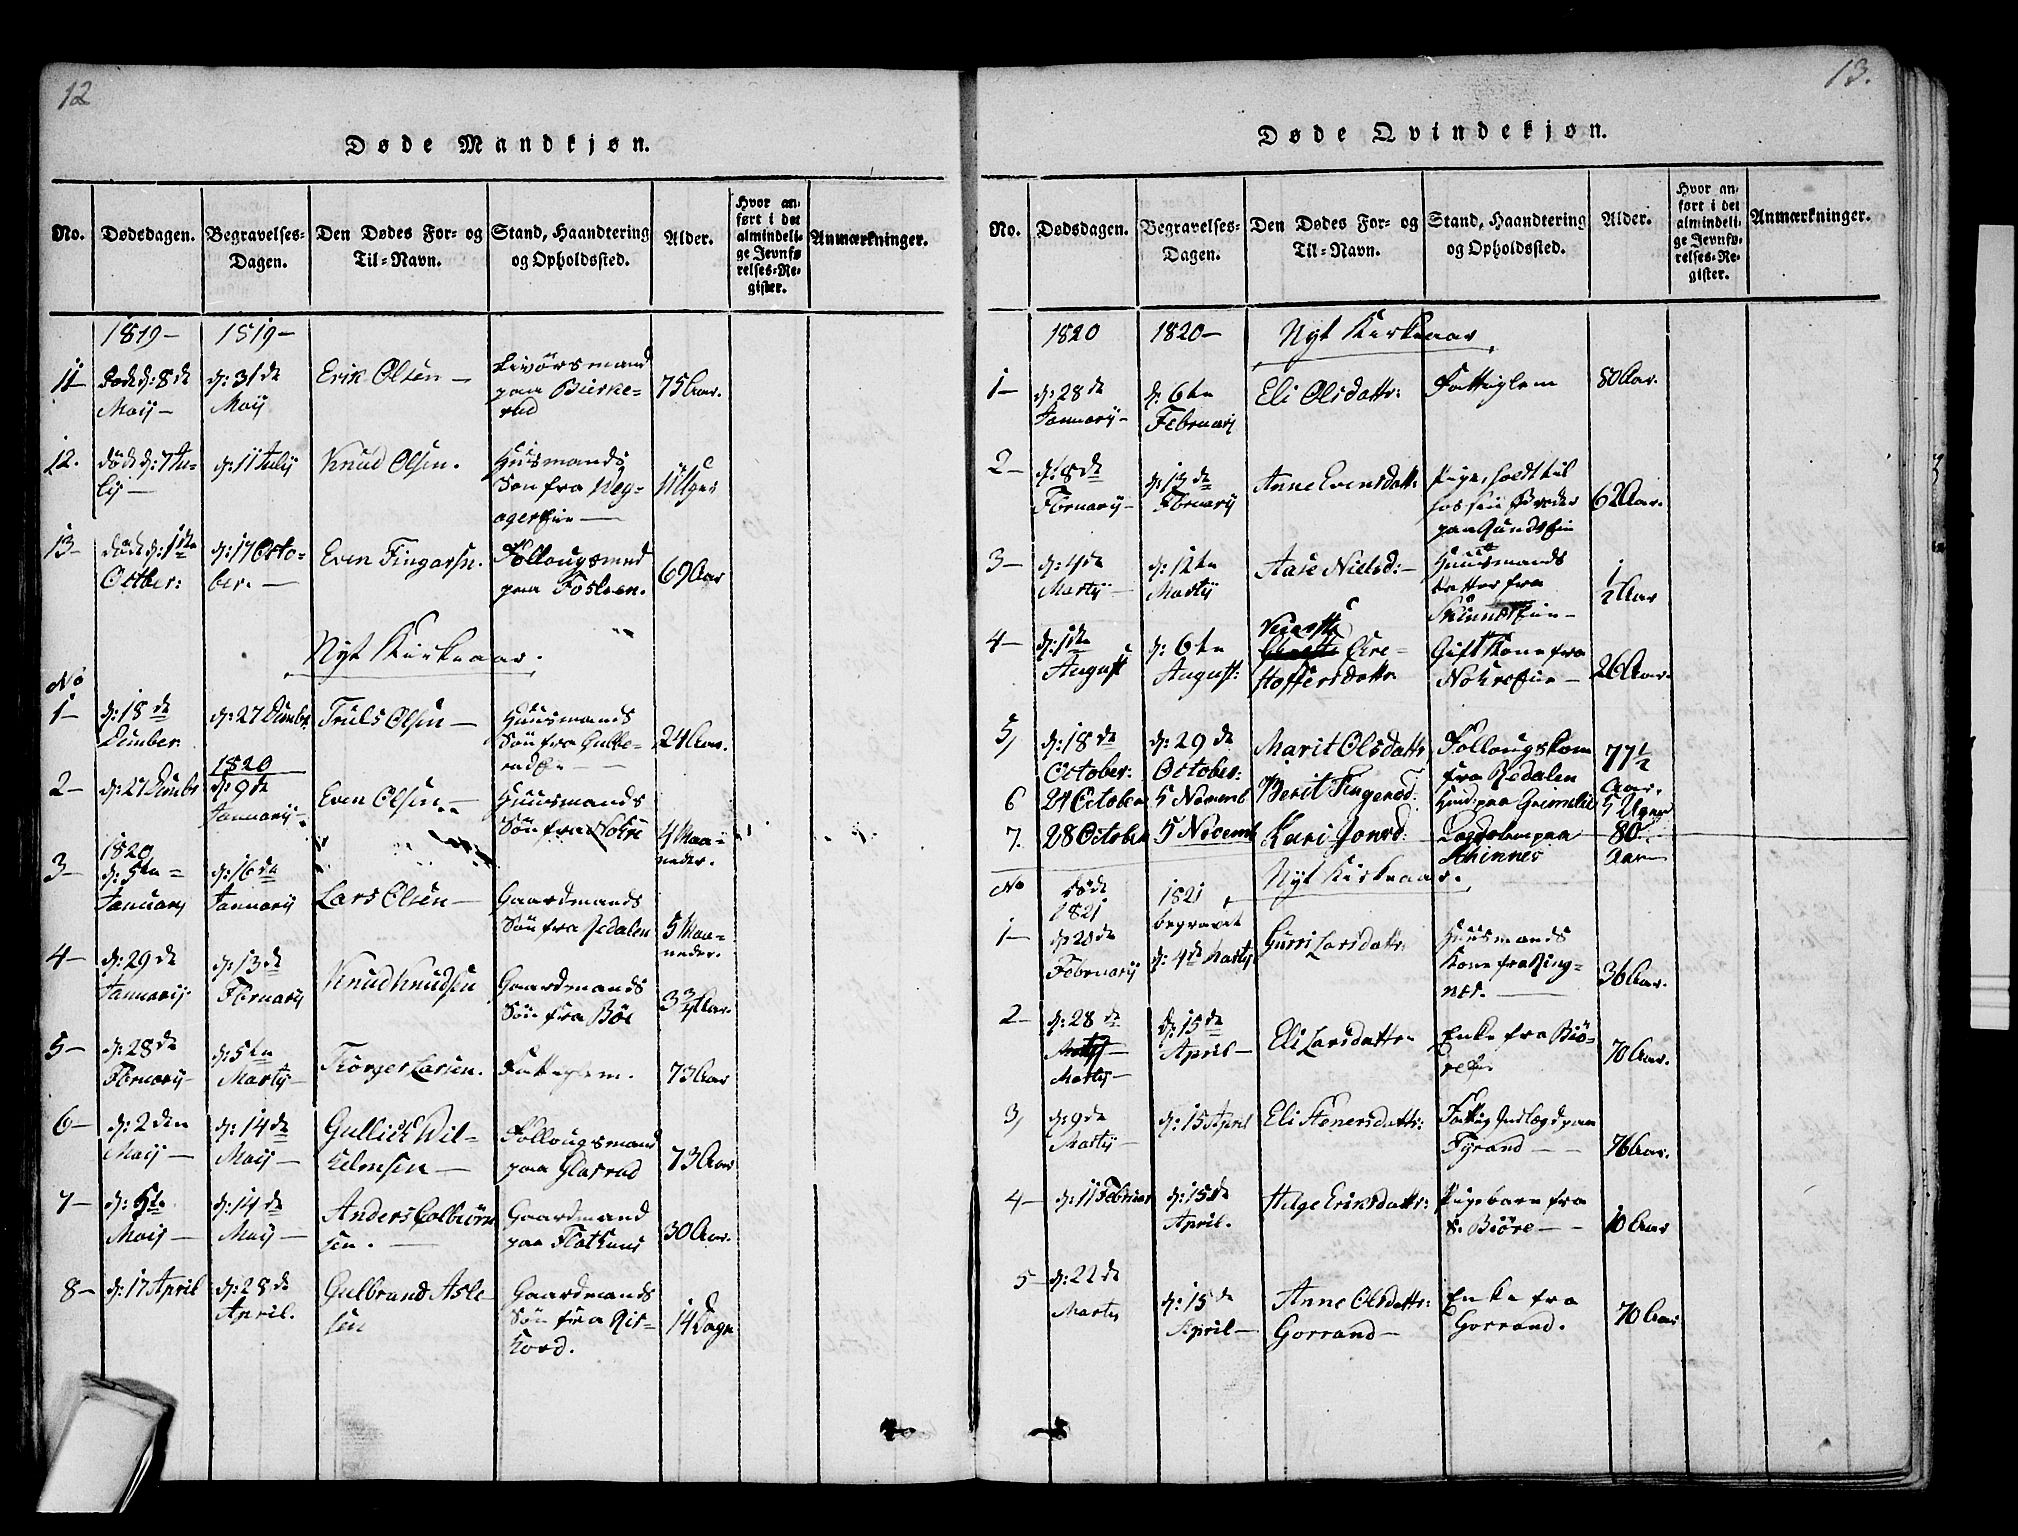 12
Døde Mandkjøn.
No.
Dødsdagen.
Begravelses-
Dagen.
Den Dødes For- og
Til-Navn.
Stand, Haandtering
og Opholdssted.
Alder.
Hvor an-
ført i det
almindeli-
ge Jevnfø-
relses-Re-
gister.
Anmærkninger.
1819-
1819-
11- Døde d: 8de
Maij-
d: 31de
Maij
Erik Olsen-
paa Birke-
rud
75 Aar.
12. døde d: 7 Ju-
lij-
d: 11 Julij
Knud Olsen.
Huusmands
Søn fra Meg-
11 Uger
13- døde d: 1ste
October:
d: 17 Octo-
ber.-
Even Fingarsn.
Follougsmand
paa Fosleen.
69 Aar
Nyt Kirkeaar.
No
1- d: 18de
Dcmber
d: 27 Dcmbr
Truls Olsen-
Huusmands
Søn fra Gulle-
24 Aar.
2- d: 27 Dcmbr
1820
d: 9de
Januarij-
Even Olsen.-
Huusmands
Søn fra Nohre
4 Maa-
neder.
1820
3- d: 5te-
Januarij
d: 16de
Januarij
Lars Olsen-
Gaardmands
Søn fra Medalen
5 Maa-
neder.
4- d: 29de
Januarij
d: 13de
Februarij
Knud Knudsen
Gaardmands
Søn fra Böe
3 3/4 Aar.
5- d: 28de
Februarij-
d: 5te
Martij-
Torger Larsen.
Fattiglem.
73 Aar
6- d: 2den
Maij-
d: 14de
Maij-
Gullich Wil-
helmsen-
Follougsmand
paa Glasrud
73 Aar
7- d: 5te
Maij-
d: 14de
Maij-
Anders Colbiørn-
sen.-
Gaardmand
paa
30 Aar.
8- d: 17 April
d: 28de
April.
Gulbrand Asle-
sen
Gaardmands
Søn fra Ris-
14 Dage
13.
Døde Qvindekjøn.
No.
Dødsdagen.
Begravelses-
Dagen.
Den Dødes For- og
Til-Navn.
Stand, Haandtering
og Opholdssted.
Alder.
Hvor an-
ført i det
almindeli-
ge Jevnfø-
relses-Re-
gister.
Anmærkninger.
1820
1820-
Nyt Kirkeaar
1- d: 28de
Januarij-
d: 6te
Februarij
Eli Olsdattr:
Fattiglem
80 Aar.
2- d: 8de
Februarij-
d: 13de
Februarij
Anne Evensdattr
Pige, holdt til
hos sin Broder
paa
62 Aar.
3- d: 4de
Martij-
d: 12te
Martij
Aase Nielsd:-
Huusmands
Datter fra
1/2 Aar
4- d: 1ste
August
d: 6te
August:
Cre-
stoffersdattr
Gift Kone fra
26 Aar.
5, d: 18de
October:
d: 29de
October:
Marit Olsdattr
Follougskone
fra Medalen
77 1/2
Aar.
6 24 October
5 Novemb
Berit Fingersd:
5 Uger
7. 28 October
5 Novemb
Kari Jonsd:
80
Aar
No
Døde
1821
1821
begravet
Nyt Kirkeaar.
1- d: 20de
Februarij
d: 4de Martij
Gurri Larsdattr:
Huusmands
Kone fra Ring-
nes.-
36 Aar.
2- d: 28de
Martij-
d: 15de
April-
Eli Larsdattr
Enke fra Biö-
70 Aar.
3, d: 9de
Martij-
d: 15 April
Eli Stenersdattr:
Fattig Indlægd paa
Tyrand-
76 Aar.
4- d: 11 Februar
d: 15de
April.
Helge Eriksdattr:
Pigebarn fra
S: Biöre-
10 Aar
5- d: 22de
Martij
d: 15de
April-
Anne Olsdattr:
Gorrand-
Enke fra
Gorrand.
70 Aar